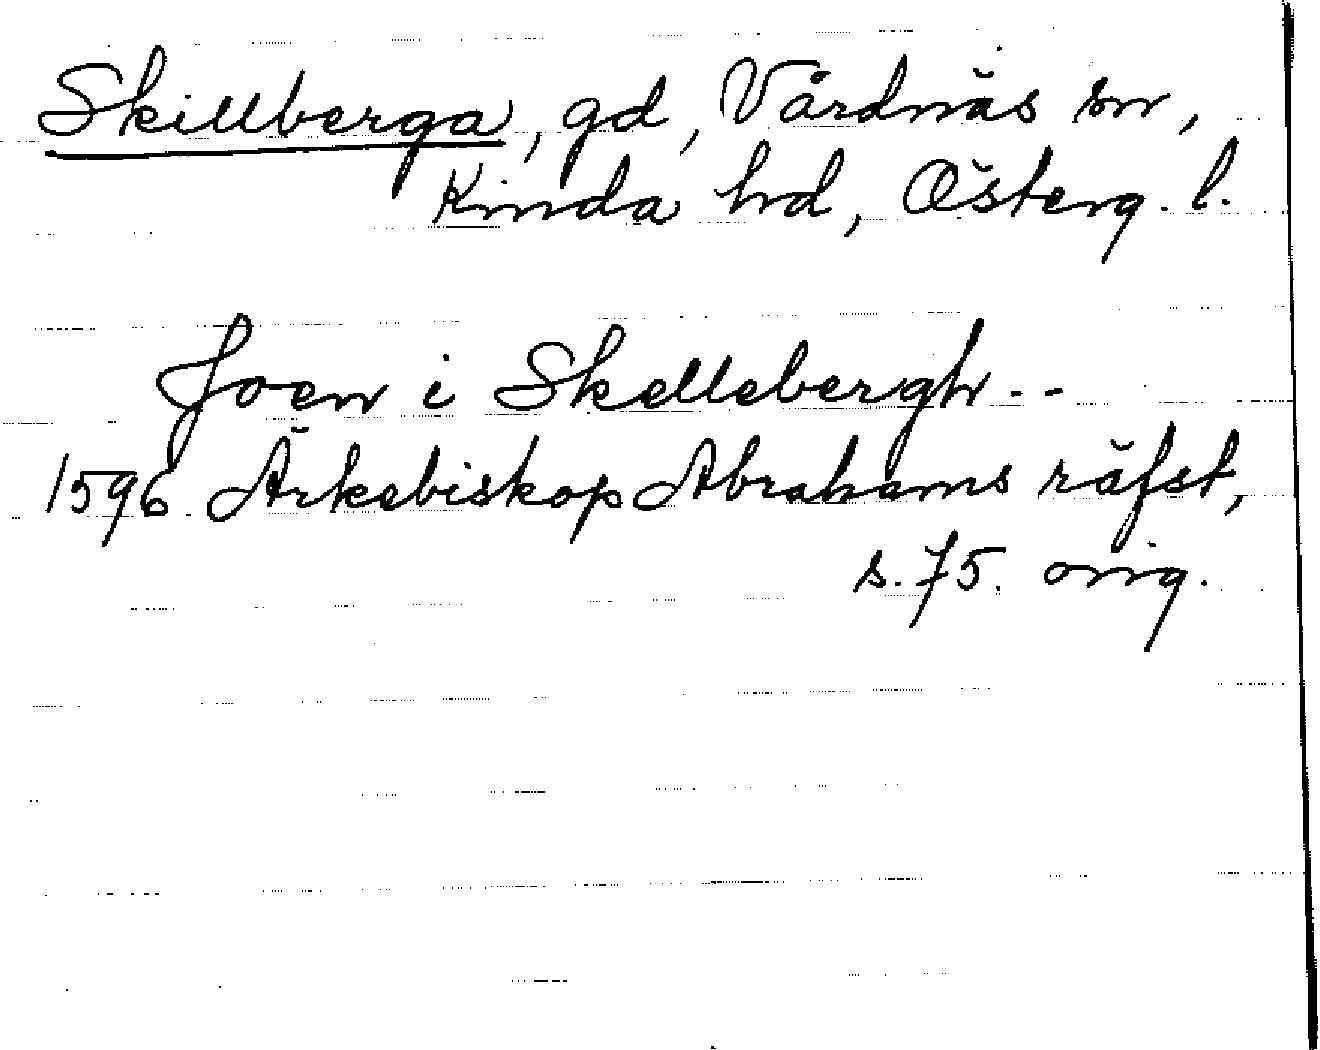 Skillberga, gd, Vårdnäs sn,
Kinda hd, Österg. l.
Joen i Skellebergh --
1596 Ärkebiskop Abrahams räfst,
s. 75. orig.